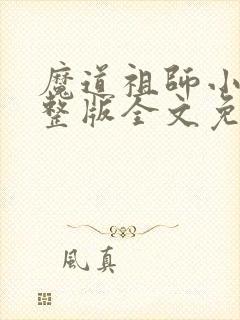 魔道祖師小
整版全文免
風真